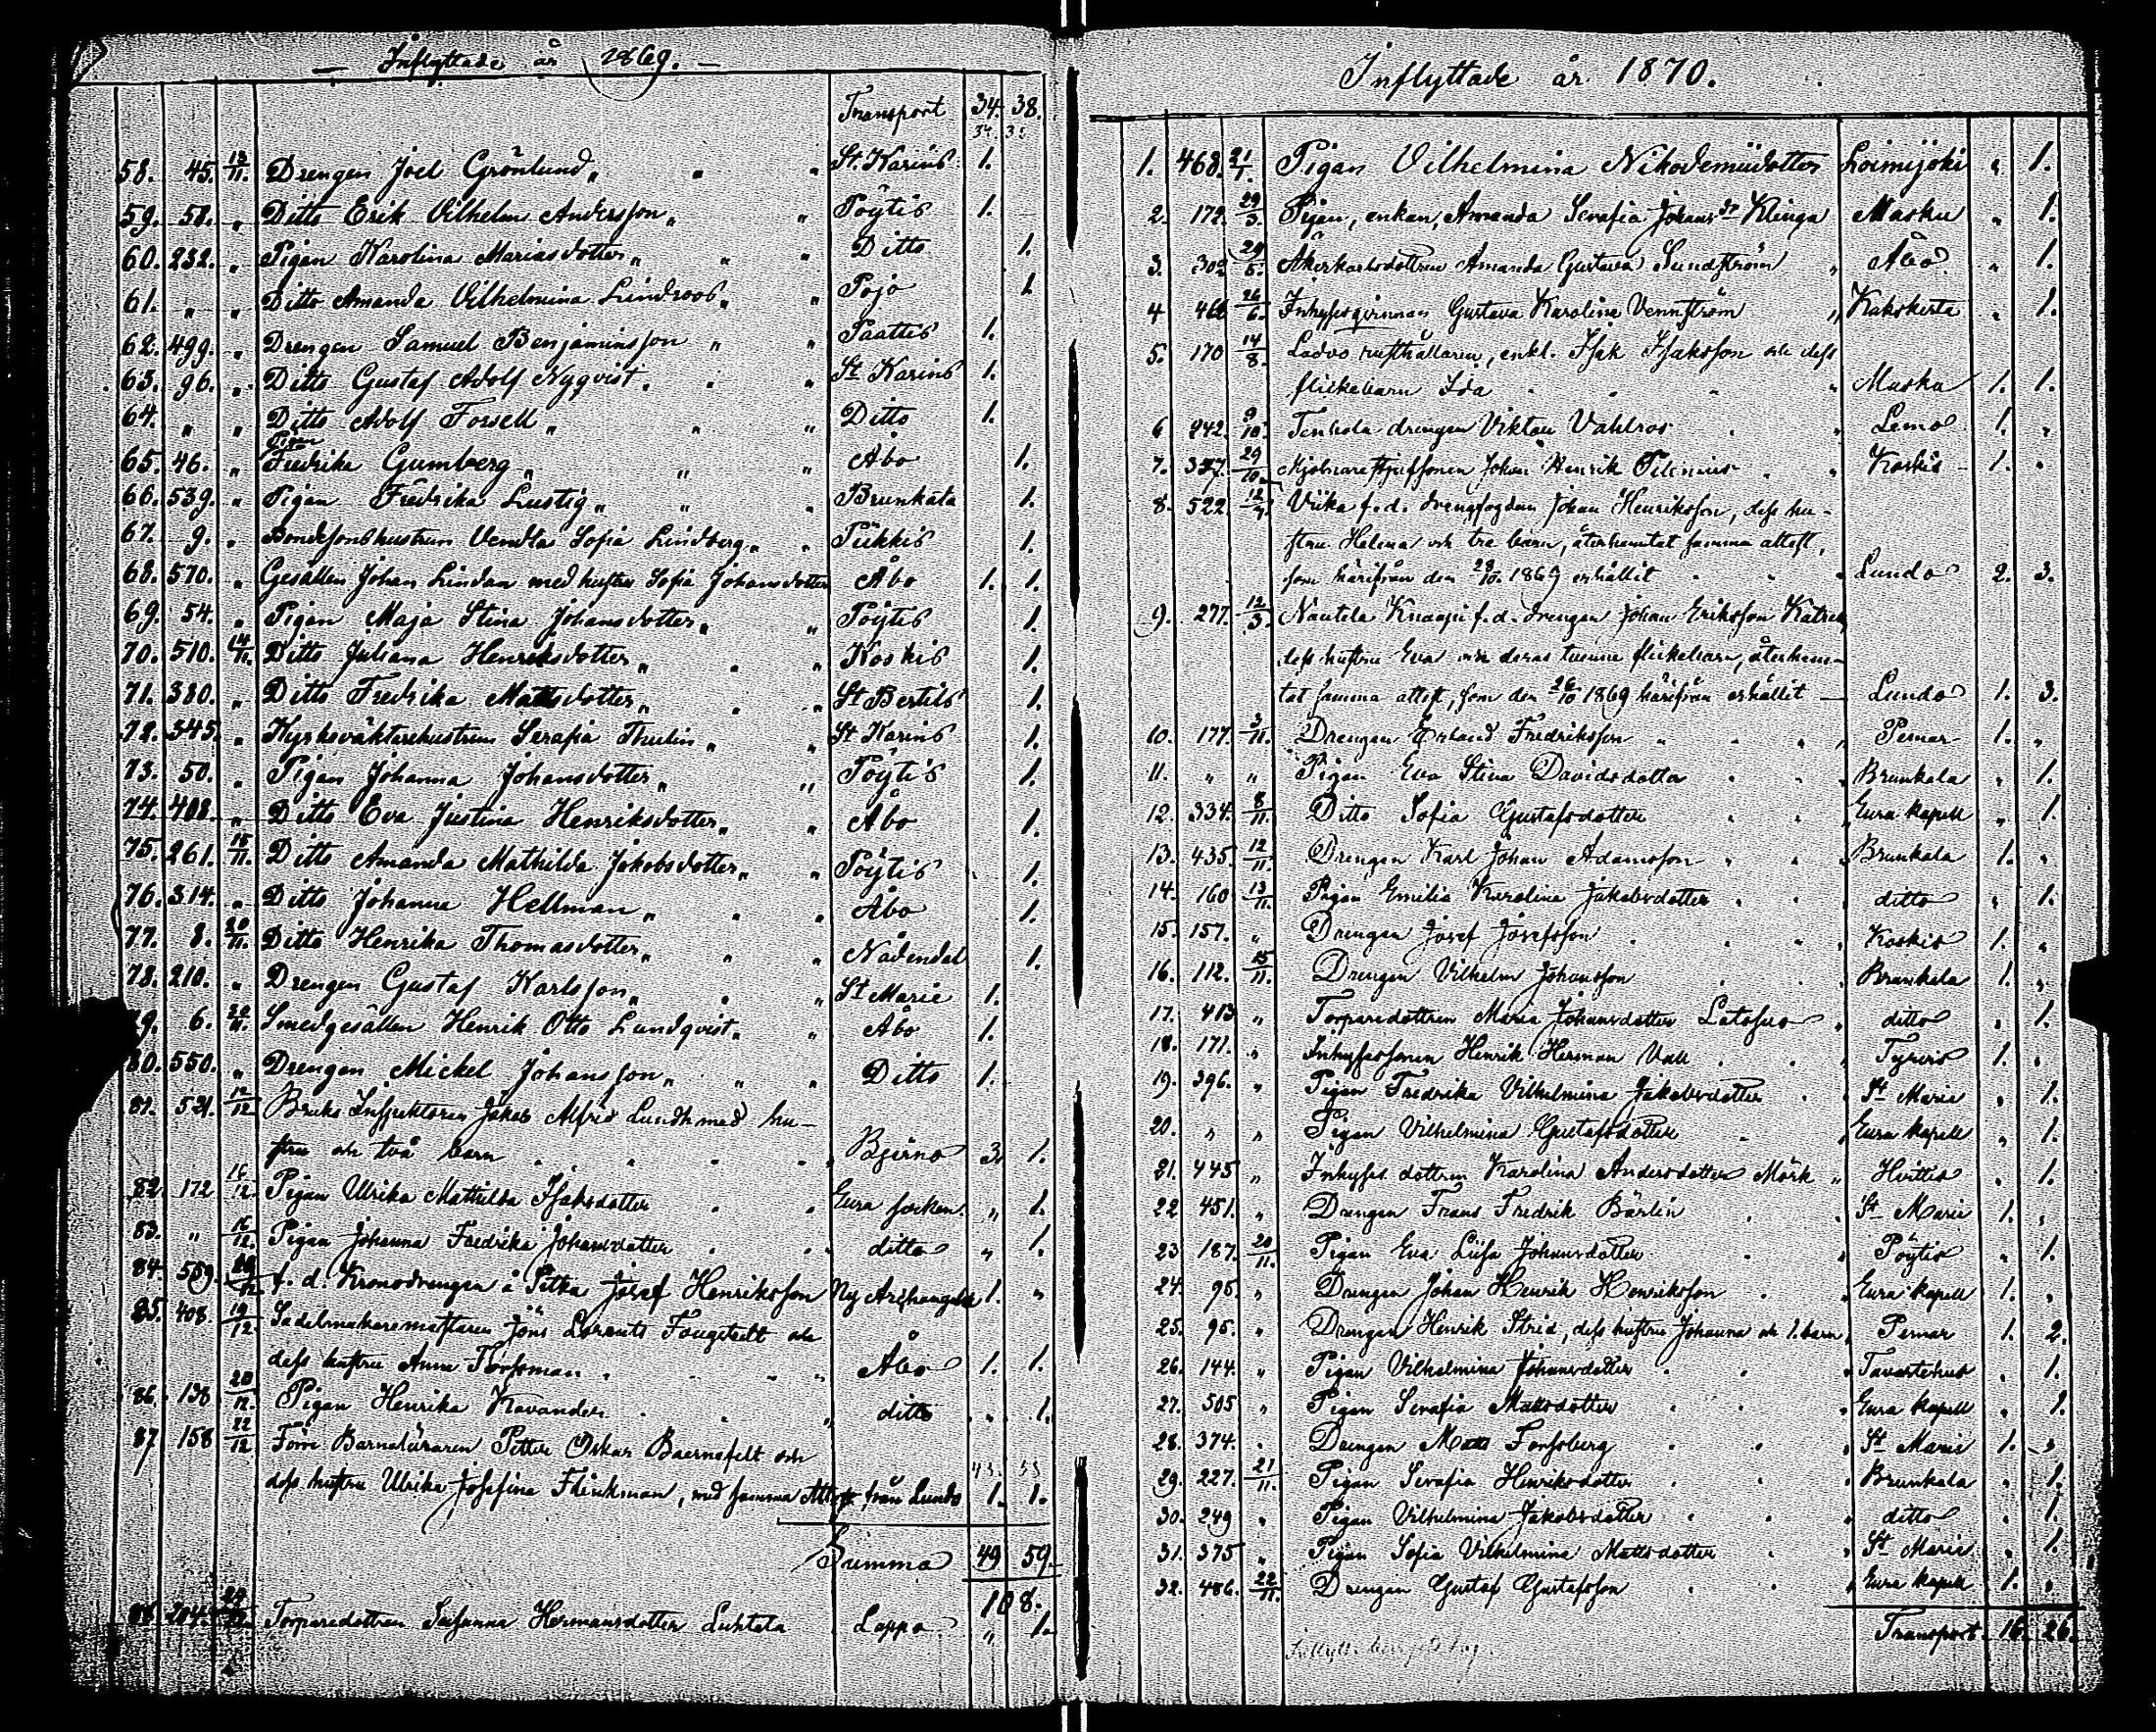 Inflyttade år 1869.
Transport 34. 38.
34. 38
58. 45. 13/11. Drengen Joel Grönlund „ „ „ St. Karins 1.
59. 58. „ Ditto Erik Vilhelm Andersson „ „ Pöytis 1.
60. 232. „ Pigan Karolina Mariasdotter „ „ „ Ditto 1.
61. „ „ Ditto Amanda Vilhelmina Lindroos „ „ Pojo 1
62. 499. „ Drengen Samuel Benjaminsson „ „ Paattis 1.
63. 96. „ Ditto Gustaf Adolf Nyqvist „ „ St Karins 1.
64. „ „ Ditto Adolf Forsell „ „ „ Ditto 1.
Pigan
65. 46. „ Fredrika Gumberg „ „ „ Åbo 1.
66. 539. „ Pigan Fredrika Lustig „ „ „ Brunkala 1.
67. 9. „ Bondesonshustrun Vendla Sofia Lindberg „ „ Piikkis 1.
68. 570. „ Gesällen Johan Lindan med hustru Sofia Johansdotter Åbo 1. 1.
69. 54. „ Pigan Maja Stina Johansdotter „ „ Pöytis 1.
70. 510. 14/11. Ditto Juliana Henriksdotter „ „ „ Koskis 1.
71. 380. „ Ditto Fredrika Mattsdotter „ „ „ St Bertils 1.
72. 345. „ Kyrkoväktarehustrun Serafia Thulin „ „ St Karins 1.
73. 50. „ Pigan Johanna Johansdotter „ „ Pöytis 1.
74. 408. „ Ditto Eva Justina Henriksdotter „ „ Åbo 1.
75. 261. 15/11. Ditto Amanda Mathilda Jakobsdotter „ „ Pöytis 1.
76. 314. „ Ditto Johanna Hellman „ „ „ Åbo 1.
77. 8. 20/11. Ditto Henrika Thomasdotter „ „ „ Nådendal 1.
78. 210. „ Drengen Gustaf Karlsson „ „ „ St Marie 1.
9. 6. 30/11. Smedgesällen Henrik Otto Lundqvist „ „ Åbo 1.
80. 550. „ Drengen Mickel Johansson „ „ „ Ditto 1.
81. 521. 12/12 Bruks Inspektoren Jakob Alfrid Lundh med hu-
stru och två barn „ „ „ „ Bjerno 3. 1.
82. 172 16/12. Pigan Ulrika Mathilda Isaksdotter „ „ Eura socken „ 1.
83. „ 16/12. Pigan Johanna Fredrika Johansdotter „ „ ditto „ 1.
84. 559. 20/12 f. d. Kronodrengen å Sitka Josef Henriksson Ny Archangelsk 1. „
85. 408. 19/12. Sadelmakaremästaren Jöns Lorents Fougstedt och
dess hustru Anna Forssman „ „ „ Åbo 1. 1.
86. 138 20/12. Pigan Henrika Kavander „ „ ditto „ 1.
87 158 22/12. Förre Barnaläraren Petter Oskar Baernefelt och
43. 53
dess hustru Ulrika Josefina Flinkman, med samma Attest från Lundo 1. 1.
Summa 49 59
108.
88. 204. Torparedottren Susanna Hermansdotter Luhtala Lappo „ 1.
Inflyttade år 1870.
1. 468. 21/1. Pigan Vilhelmina Nikodemidotter Loimijoki „ 1.
2. 172. 29/3. Pigan, enkan, Amanda Serafia Johansdr Klinga Masku „ 1.
3. 302 29/5. Åkerkarlsdottren Amanda Gustava Sundström „ Åbo „ 1.
4 466 26/6. Inhysesqvinnan Gustava Karolina Vennström „ Kakskerta „ 1.
5. 170 14/8. Ladvo rusthållaren, enkl. Isak Isaksson och dess
flickebarn Ida „ „ „ Masku 1. 1.
6 242. 9/10. Tenhola drengen Viktor Vahlros „ „ Lemo 1. „
7. 327. 29/10 Mjölnare styfsonen Johan Henrik Filenius „ „ Koskis 1. „
8. 522. Viika f. d. drengfogden Johan Henriksson, dess hu-
stru Helena och tre barn, återhemtat samma attest,
som härifrån den 28/10 1869 erhållit „ „ Lundo 2. 3.
9. 277. 12/3. Nautela Knaapi f. d. drengen Johan Eriksson Katrea
dess hustru Eva och deras tvenne flickebarn, återhem-
tat samma attest, som den 26/10 1869 härifrån erhållit Lundo 1. 3.
10. 177. 3/11. Drengen Erland Fredriksson „ „ „ Pemar 1. „
11. „ „ Pigan Eva Stina Davidsdotter „ „ Brunkala „ 1.
12. 334. 8/11. Ditto Sofia Gustafsdotter „ „ Eura kapell „ 1.
13. 435. 12/11. Drengen Karl Johan Adamsson „ „ Brunkala 1. „
14. 160 13/11. Pigan Emilia Karolina Jakobsdotter „ „ ditto „ 1.
15. 157. „ Drengen Josef Josefsson „ „ „ Koskis 1. „
16. 112. 15/11. Drengen Vilhelm Johansson „ „ Brunkala 1. „
17. 413 „ Torparedottren Maria Johansdotter Latosuo „ ditto „ 1.
18. 171. „ Inhysessonen Henrik Herman Vall „ „ Tyrvis 1. „
19. 396. „ Pigan Fredrika Vilhelmina Jakobsdotter „ St Marie „ 1.
20. „ „ Pigan Vilhelmina Gustafsdotter „ Eura kapell „ 1.
21. 445 „ Inhyses dottren Karolina Andersdotter Mörk „ Hvittis „ 1.
22 451. „ Drengen Frans Fredrik Bärlin „ „ St Marie 1. „
23 187. 20/11. Pigan Eva Liisa Johansdotter „ Pöytis „ 1.
24. 95. „ Drengen Johan Henrik Henriksson „ „ Eura kapell 1. „
25. 95. „ Drengen Henrik Strid, dess hustru Johanna och 1. barn, Pemar 1. 2.
26. 144. „ Pigan Vilhelmina Johansdotter „ „ „ Tavastehus „ 1.
27. 505 „ Pigan Serafia Mattsdotter „ „ „ Eura kapell „ 1.
28. 374. „ Drengen Matts Forssberg „ „ „ St Marie 1. „
29. 227. 21/11. Pigan Serafia Henriksdotter „ „ Brunkala „ 1.
30. 249 „ Pigan Vilhelmina Jakobsdotter „ „ „ ditto „ 1.
31. 375 „ Pigan Sofia Vilhelmina Mattsdotter „ „ St Marie „ 1.
32. 486. 22/11. Drengen Gustaf Gustafsson „ „ „ Eura kapell 1. „
Transport. 16. 26.